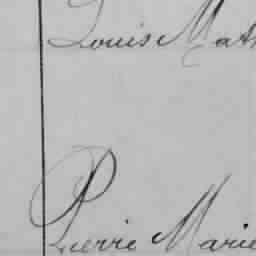 Louis Math
Pierre Marie